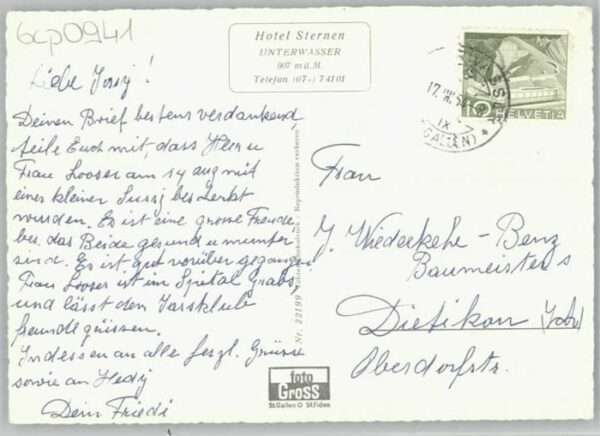 6cp0941
Hotel Sternen
UNTERWASSER
907 m ü. M.
Telefon (07-) 74101
HELVETIA
10
17. VIII. 5
GALLEN)
Liebe Jussy!
Deinen Brief bestens verdankend,
teile Euch mit, dass Herr u
Frau Looser am 14 aug mit
einer kleiner Sussj beschenkt
wurden. Es ist eine grosse Freude
bei das Beide gesund u munter
sind. Es ist gut vorüber gegangen
Frau Looser ist im Spital Grabs,
und lässt den Jassklub
freunde grüssen.
Indessen an alle herzl. Grüsse
sowie an Hedij
Dein Friedi
Nr. 22199
Reproduktion verboten
Frau
J. Wiederkehr-Benz
Baumeisters
Dietikon (Zch)
Oberdorfstr.
foto
GROSS
St.Gallen O St.Fiden